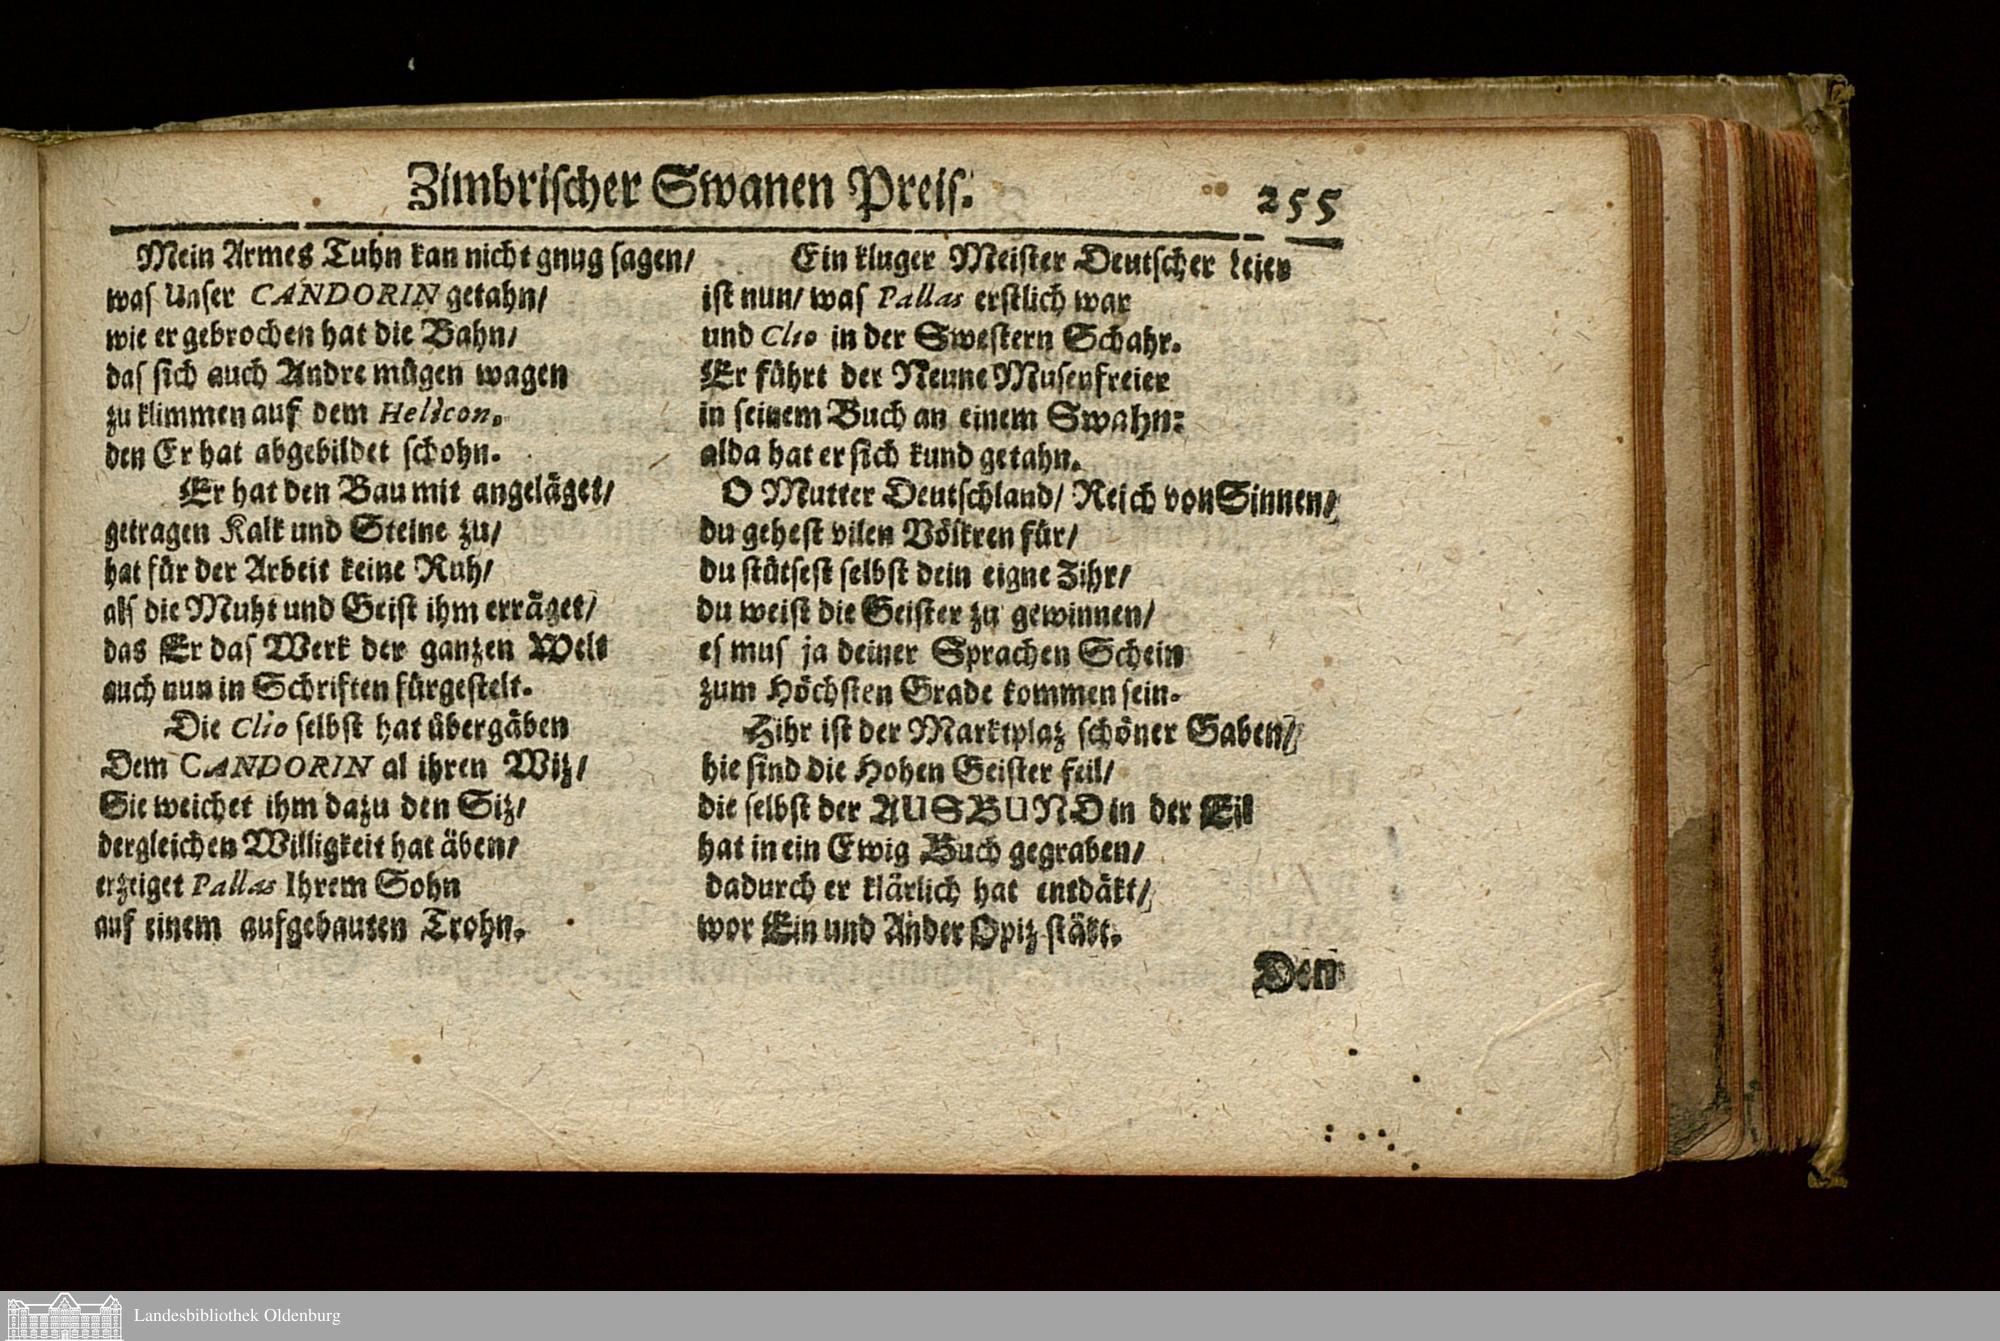 Zimbrischer Swanen Preis.
255
Mein Armes Tuhn kan nicht gnug sagen/
was Unser CANDORIN getahn/
wie er gebrochen hat die Bahn/
das sich auch Andre mügen wagen
zu klimmen auf dem Helicon.
den Er hat abgebildet schohn.
Er hat den Bau mit angeläget/
getragen Kalk und Steine zu/
hat für der Arbeit keine Ruh/
als die Muht und Geist ihm erräget/
das Er das Werk der ganzen Welt
auch nun in Schriften fürgestelt.
Die Clio selbst hat übergäben
Dem CANDORIN al ihren Wiz/
Sie weichet ihm dazu den Siz/
dergleichen Willigkeit hat äben/
erzeiget Pallas Ihrem Sohn
auf einem aufgebauten Trohn.
Ein kluger Meister Deutscher Leier
ist nun/ was Pallas erstlich war
und Clio in der Swestern Schahr.
Er führt der Neune Musenfreier
in seinem Buch an einem Swahn:
alda hat er sich kund getahn.
O Mutter Deutschland/ Reich von Sinnen/
du gehest vilen Völkren für/
du stätsest selbst dein eigne Zihr/
du weist die Geister zu gewinnen/
es mus ja deiner Sprachen Schein
zum Höchsten Grade kommen sein.
Zihr ist der Marktplaz schöner Gaben/
hie sind die Hohen Geister feil/
die selbst der AUSBUND in der Eil
hat in ein Ewig Buch gegraben/
dadurch er klärlich hat entdäkt/
wor Ein und Ander Opiz stäkt.
Den
Landesbibliothek Oldenburg